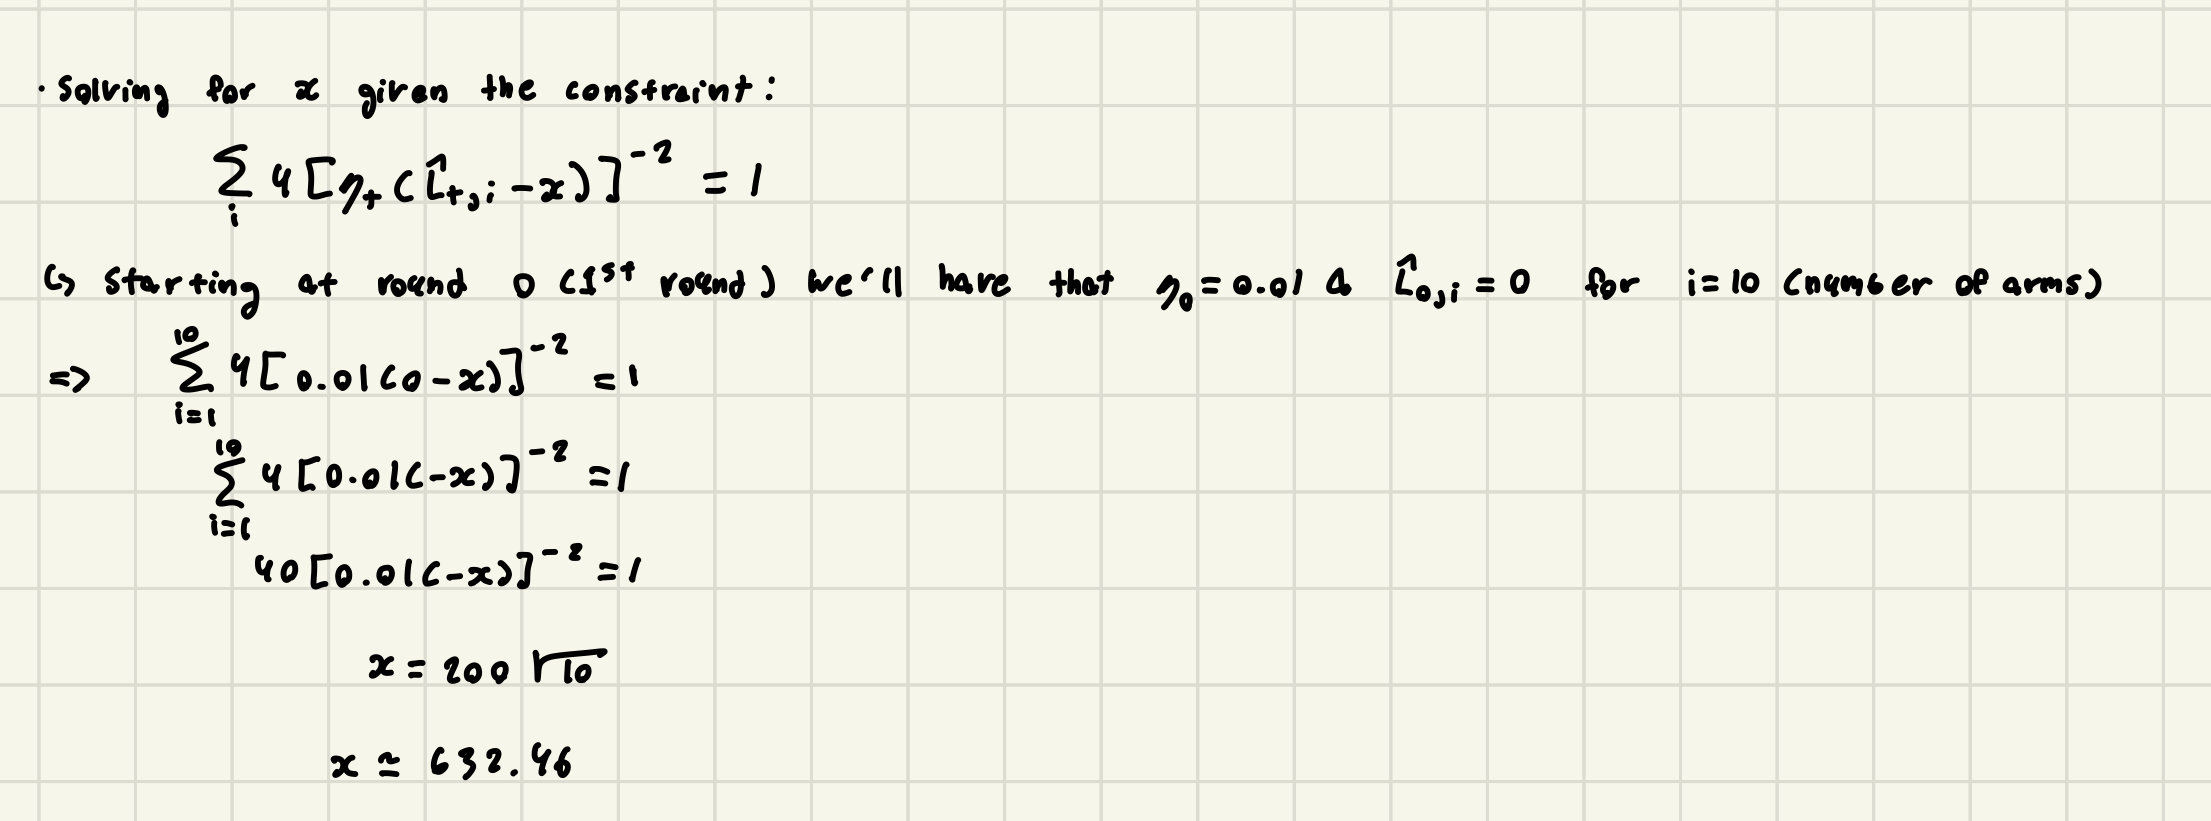 · Solving for x given the constraint:
∑_i 4[η_t(L̂_{t,i} - x)]^{-2} = 1
↳ starting at round 0 (1st round) we'll have that η_0 = 0.01 & L̂_{0,i} = 0 for i=10 (number of arms)
=> ∑_{i=1}^{10} 4[0.01(0-x)]^{-2} = 1
∑_{i=1}^{10} 4[0.01(-x)]^{-2} = 1
40[0.01(-x)]^{-2} = 1
x = 200 √10
x ≃ 632.46